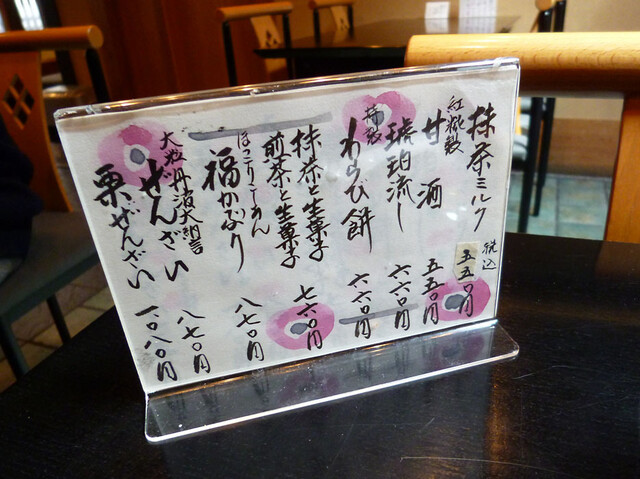 税込
抹茶ミルク 五五〇円
紅糀製
甘酒 五五〇円
琥珀流し 六六〇円
特製
わらび餅 六六〇円
抹茶と生菓子
煎茶と生菓子 七六〇円
福かぶり 八七〇円
大粒丹波大納言
ぜんざい 八七〇円
栗ぜんざい 一〇八〇円